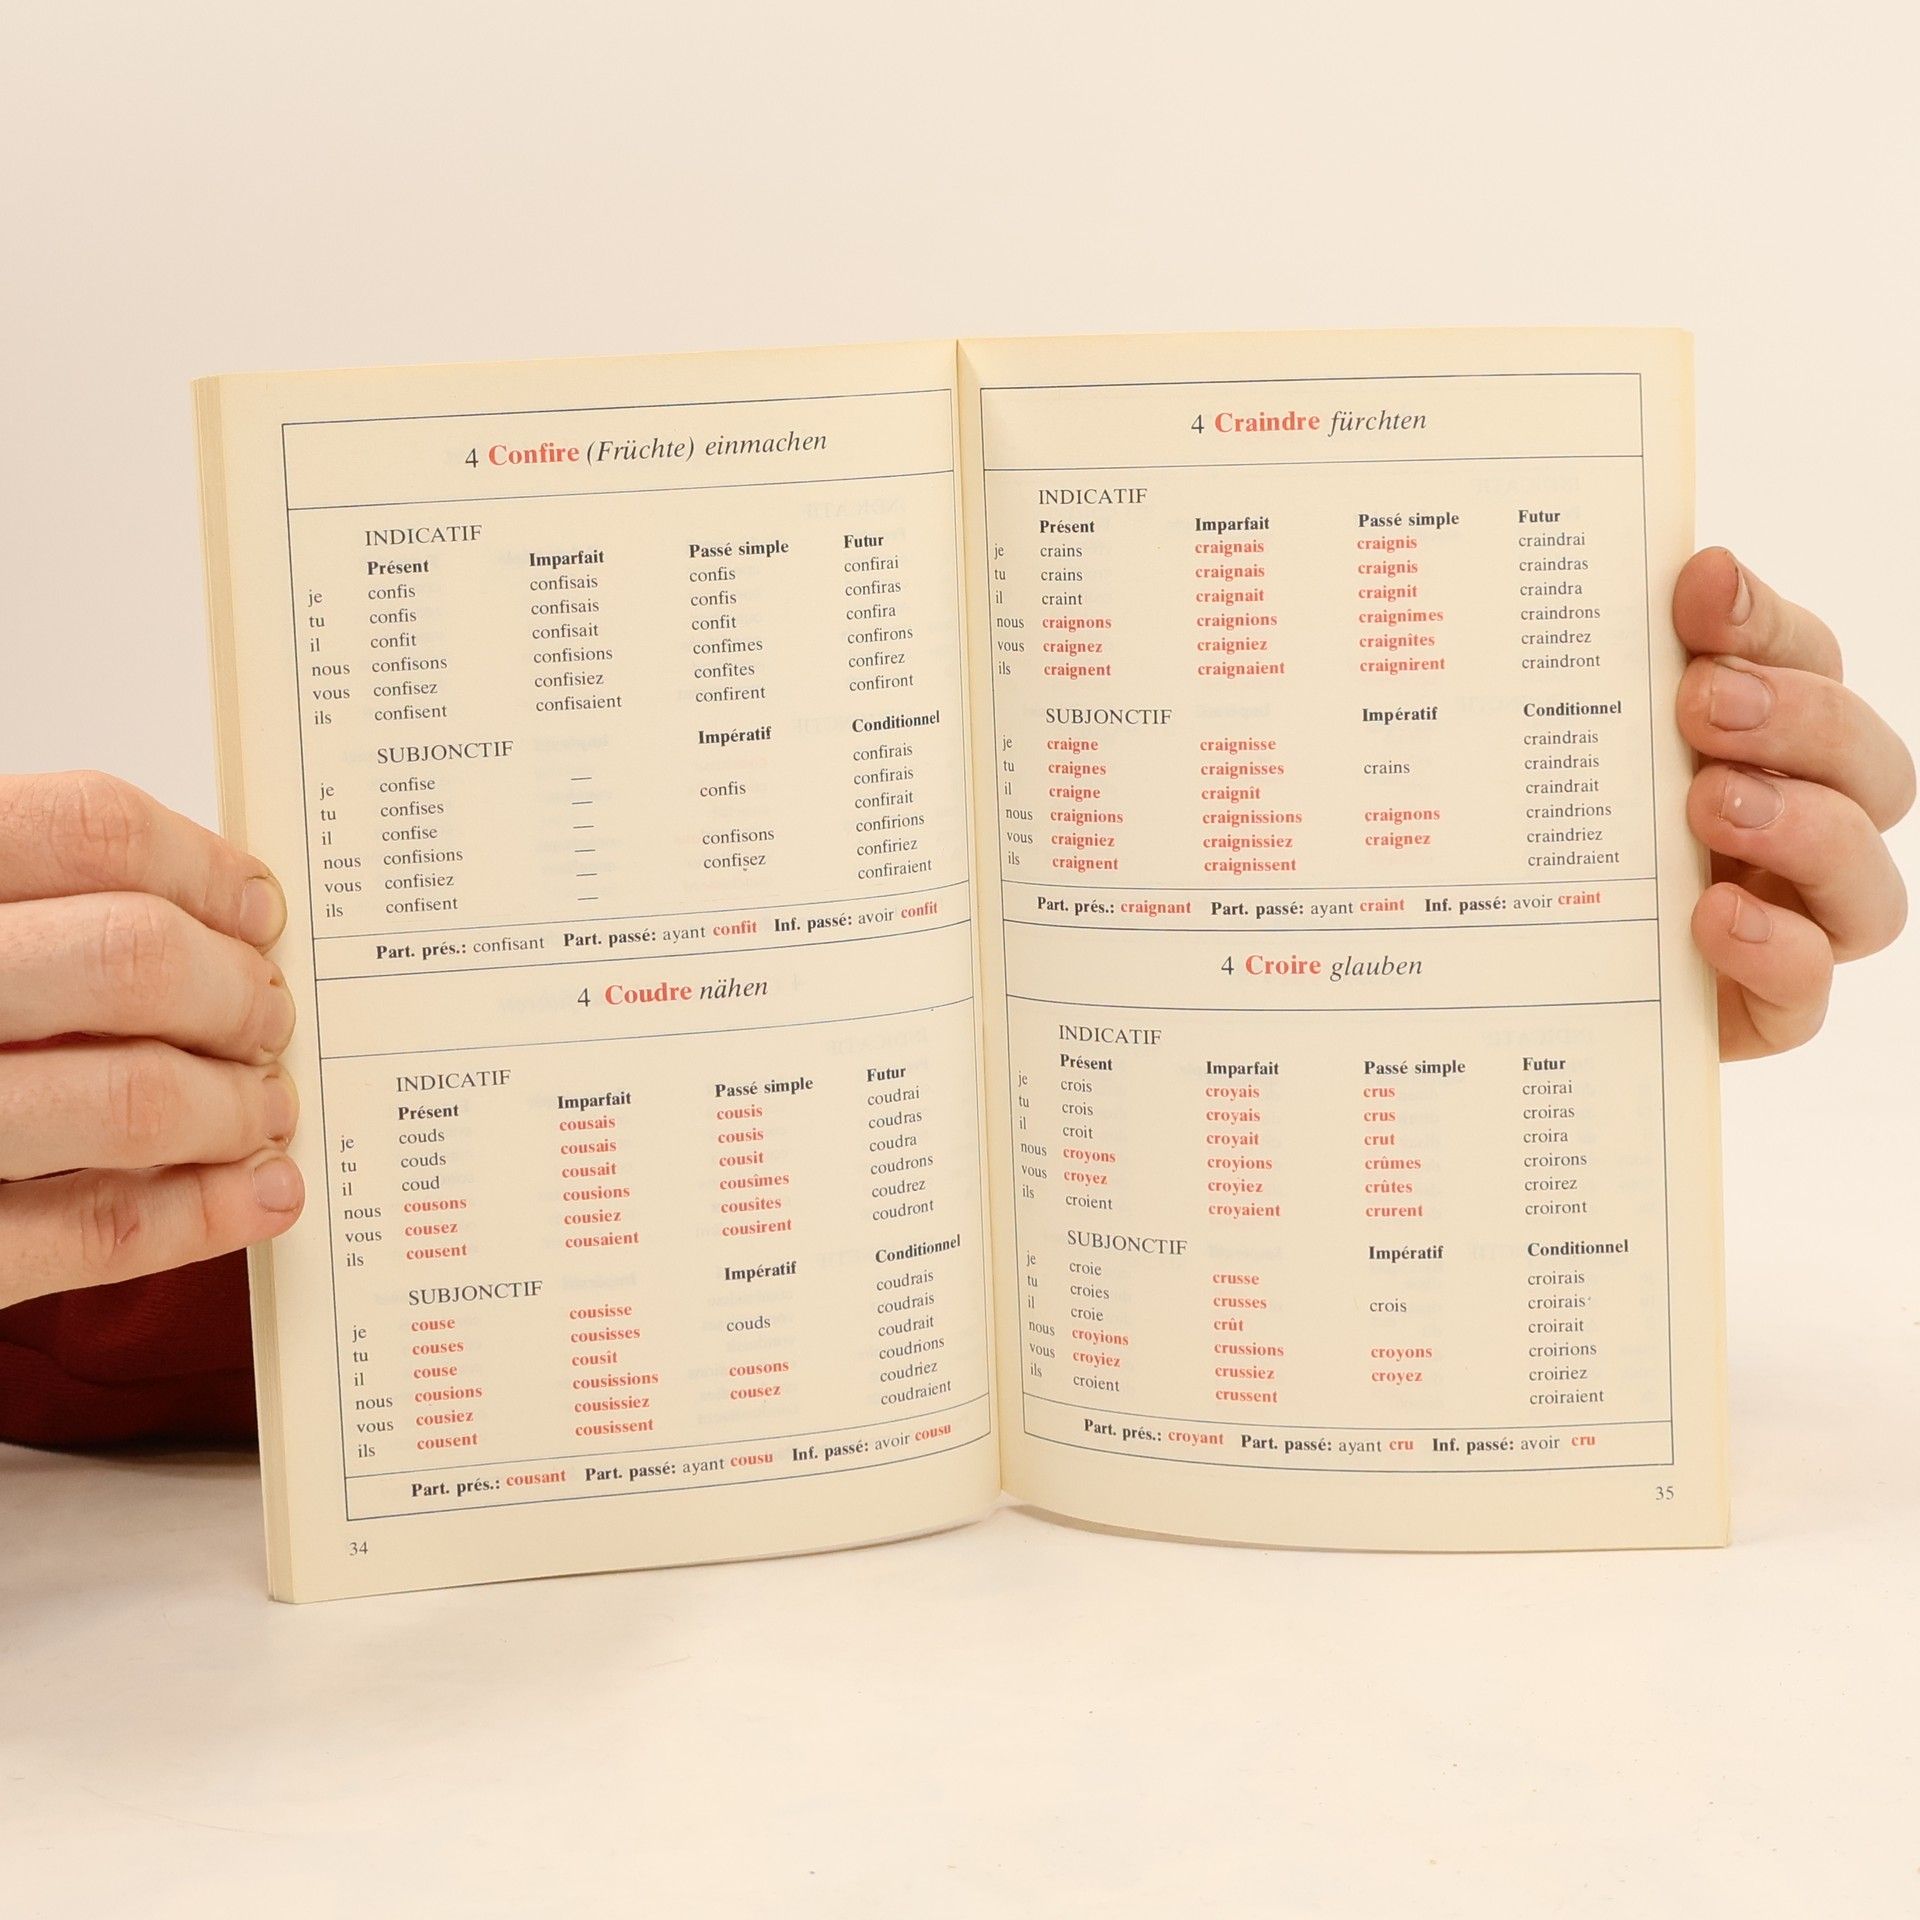 4 Confire (Früchte) einmachen
INDICATIF
Présent Imparfait Passé simple Futur
je confis confisais confis confirai
tu confis confisais confis confiras
il confit confisait confit confira
nous confisons confisions confîmes confirons
vous confisez confisiez confîtes confirez
ils confisent confisaient confirent confiront
SUBJONCTIF Impératif Conditionnel
je confise — confirais
tu confises — confis confirais
il confise — confirait
nous confisions — confisons confirions
vous confisiez — confisez confiriez
ils confisent — confiraient
Part. prés.: confisant Part. passé: ayant confit Inf. passé: avoir confit
4 Coudre nähen
INDICATIF
Présent Imparfait Passé simple Futur
je couds cousais cousis coudrai
tu couds cousais cousis coudras
il coud cousait cousit coudra
nous cousons cousions cousîmes coudrons
vous cousez cousiez cousîtes coudrez
ils cousent cousaient cousirent coudront
SUBJONCTIF Impératif Conditionnel
je couse cousisse coudrais
tu couses cousisses couds coudrais
il couse cousît coudrait
nous cousions cousissions cousons coudrions
vous cousiez cousissiez cousez coudriez
ils cousent cousissent coudraient
Part. prés.: cousant Part. passé: ayant cousu Inf. passé: avoir cousu
34
4 Craindre fürchten
INDICATIF
Présent Imparfait Passé simple Futur
je crains craignais craignis craindrai
tu crains craignais craignis craindras
il craint craignait craignit craindra
nous craignons craignions craignîmes craindrons
vous craignez craigniez craignîtes craindrez
ils craignent craignaient craignirent craindront
SUBJONCTIF Impératif Conditionnel
je craigne craignisse craindrais
tu craignes craignisses crains craindrais
il craigne craignît craindrait
nous craignions craignissions craignons craindrions
vous craigniez craignissiez craignez craindriez
ils craignent craignissent craindraient
Part. prés.: craignant Part. passé: ayant craint Inf. passé: avoir craint
4 Croire glauben
INDICATIF
Présent Imparfait Passé simple Futur
je crois croyais crus croirai
tu crois croyais crus croiras
il croit croyait crut croira
nous croyons croyions crûmes croirons
vous croyez croyiez crûtes croirez
ils croient croyaient crurent croiront
SUBJONCTIF Impératif Conditionnel
je croie crusse croirais
tu croies crusses crois croirais
il croie crût croirait
nous croyions crussions croyons croirions
vous croyiez crussiez croyez croiriez
ils croient crussent croiraient
Part. prés.: croyant Part. passé: ayant cru Inf. passé: avoir cru
35